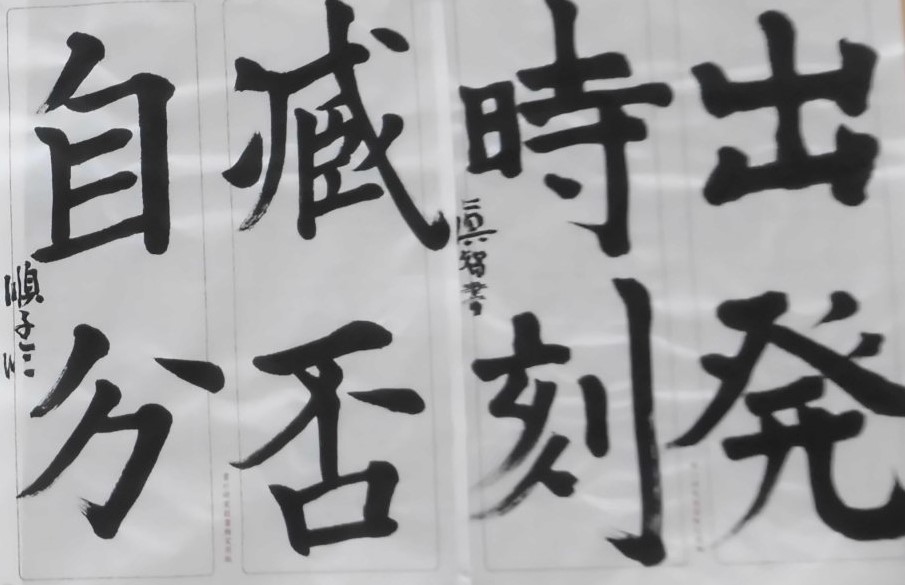 出発
時刻
臧否
自分
眞智書
順子